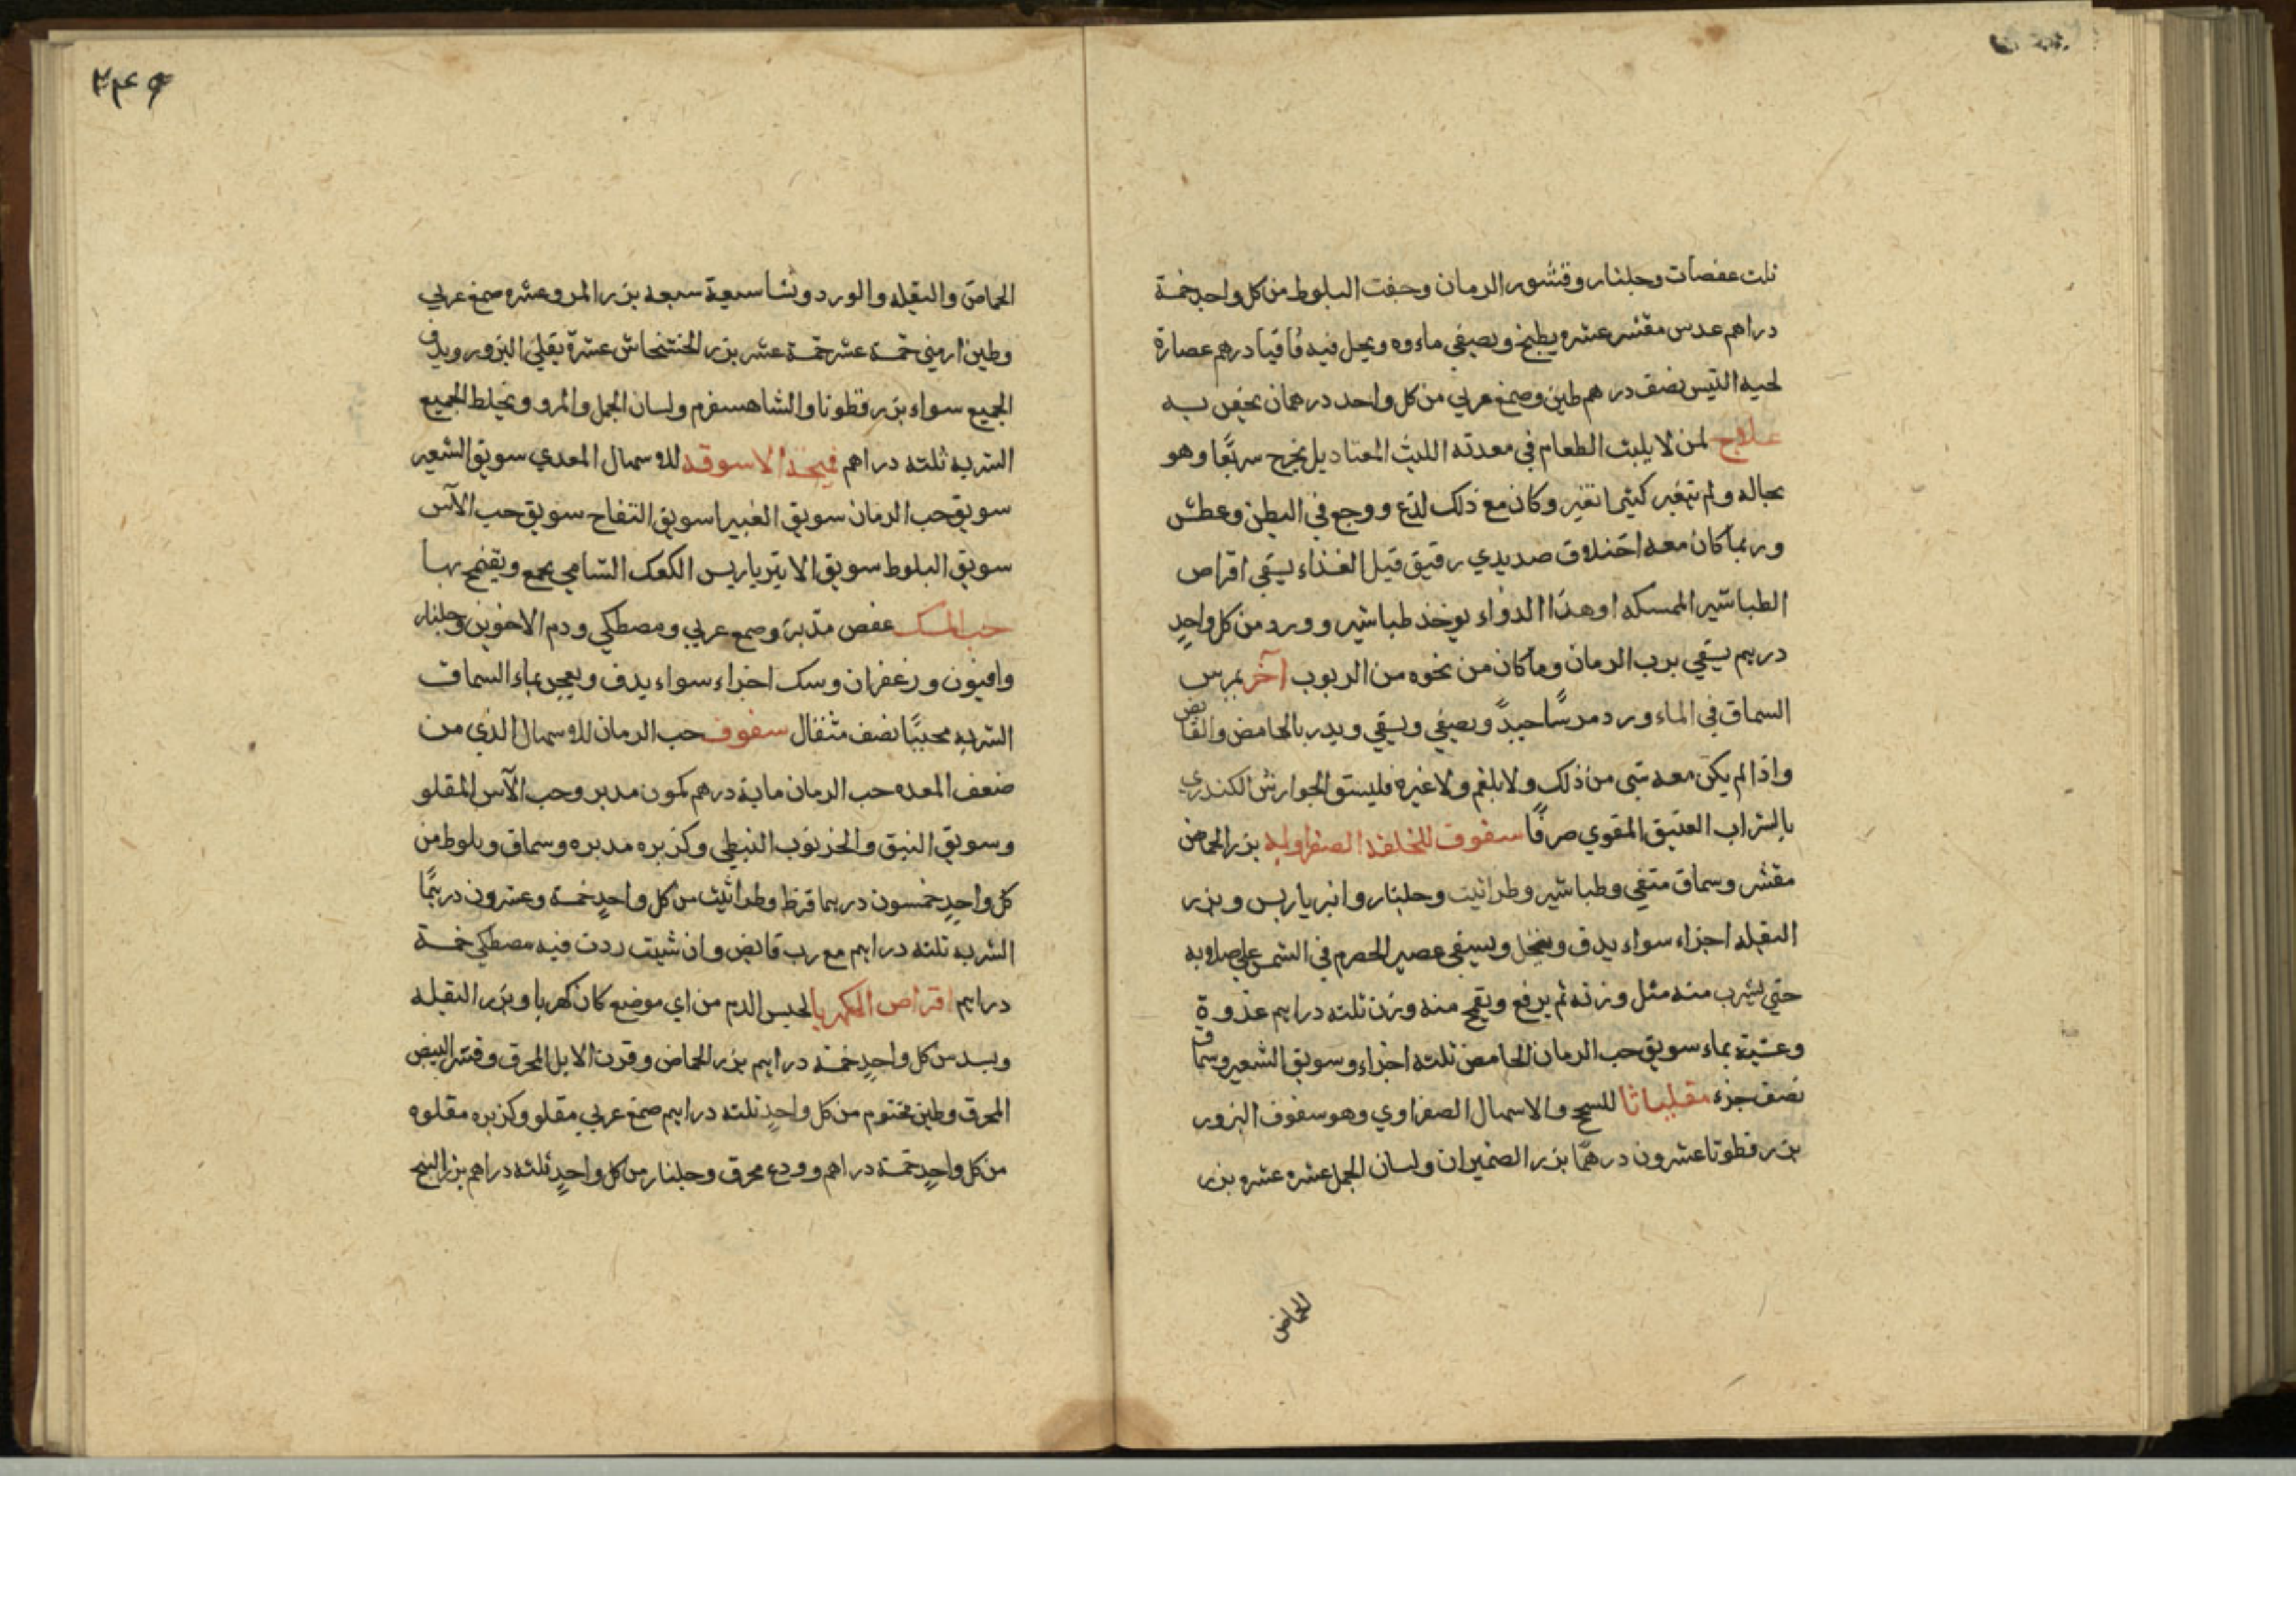 ثلث عفصات وجلنار وقشور الرمان وجفت البلوط من كل واحد خمسة
دراهم عدس مقشر عشره يطبخ ويصفي ماءوه ويحل فيه قاقيا درهم عصارة
لحيه التيس نصف درهم طين وصمغ عربي من كل واحد درهمان يحقن به
علاج لمن لا يلبث الطعام في معدته اللبث المعتاد بل يخرج سريعًا وهو
بحاله ولم يتغير كثير تغير وكان مع ذلك لذع ووجع في البطن وعطش
وربما كان معه اختلاف صديدي رقيق قبل الغذاء يسقي اقراص
الطباشير الممسكه او هذا الدواء يوخذ طباشير وورد من كل واحدٍ
درهم يسقي برب الرمان وما كان من نحوه من الربوب آخر يمرس
السماق في الماء ورد مرسًا جيدً ويصفي ويسقي ويدبر بالحامض والقابض
واذا لم يكن معه شي من ذلك ولا بلغم ولا غيره فليستق الجوارش الكندري
بالشراب العتيق المقوي صرفًا سفوف للخلفه الصفراويه بزر الحماض
مقشر وسماق منقي وطباشير وطراثيث وجلنار وانبرباريس وبزر
البقله اجزاء سواء يدق وينخل ويسقي عصير الحصرم في الشمس علي صلايه
حتي يشرب منه مثل وزنه ثم يرفع ويقمح منه وزن ثلثه دراهم غذوةٍ
وعشيّة بماء سويق حب الرمان الحامض ثلثه اجزاء وسويق الشعير وسماق
نصف جزء مقلياثا للسحج والاسهال الصفراوي وهو سفوف البزور
بزر قطونا عشرون درهمًا بزر الضميران ولسان الجمل عشره عشره بزر
الحماض
٢٤٩
الحماض والبقيله والورد ونشا سبعة سبعه بزر المر وعشره صمغ عربي
وطين ارميني خمسة عشر خمسة عشر بزر الخشخاش عشرة يقلي البزور ويدق
الجميع سواء بزر قطونا والشاهسفرم ولسان الجمل والمرو ويخلط الجميع
الشربه ثلثه دراهم قمحة الاسوقه للاسهال المعدي سويق الشعير
سويق حب الرمان سويق الغبيرا سويق التفاح سويق حب الآس
سويق البلوط سويق الانبرباريس الكعك الشامي يجمع ويقمح بها
حب المسك عفص مدبر وصمغ عربي ومصطكي ودم الاخوين وجلنار
وافيون وزعفران وسك اجزاء سواء يدق ويعجن بماء السماق
الشربه محببًا نصف مثقال سفوف حب الرمان للاسهال الذي من
ضعف المعده حب الرمان مايه درهم كمون مدبر وحب الآس المقلو
وسويق النبق والخرنوب النبطي وكزبره مدبره وسماق وبلوط من
كل واحدٍ خمسون درهما قرظ وطراثيث من كل واحدٍ خمسة وعشرون درهمًا
الشربه ثلثه دراهم مع رب قابض وان شيت زدت فيه مصطكي خمسة
دراهم اقراص الكهربا لحبس الدم من اي موضع كان كهربا وبزر البقله
وبسد من كل واحدٍ خمسة دراهم بزر الحماض وقرن الايل المحرق وقشر البيض
المحرق وطين مختوم من كل واحدٍ ثلثه دراهم صمغ عربي مقلو وكزبره مقلوه
من كل واحدٍ خمسة دراهم وودع محرق وجلنار من كل واحدٍ ثلثه دراهم بزر البنج